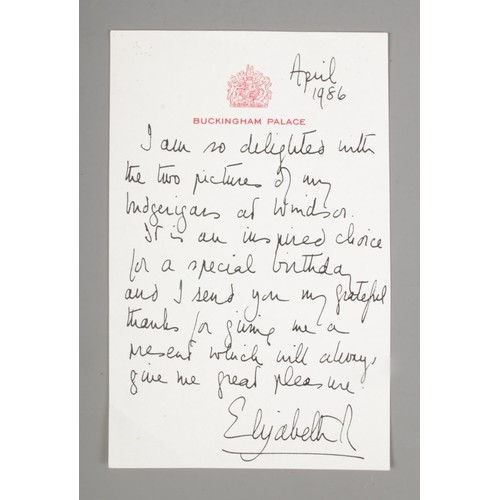 April
1986
BUCKINGHAM PALACE
I am so delighted with
the two pictures of my
budgerigars at Windsor.
It is an inspired choice
for a special birthday
and I send you my grateful
thanks for giving me a
present which will always
give me great pleasure.
Elizabeth R